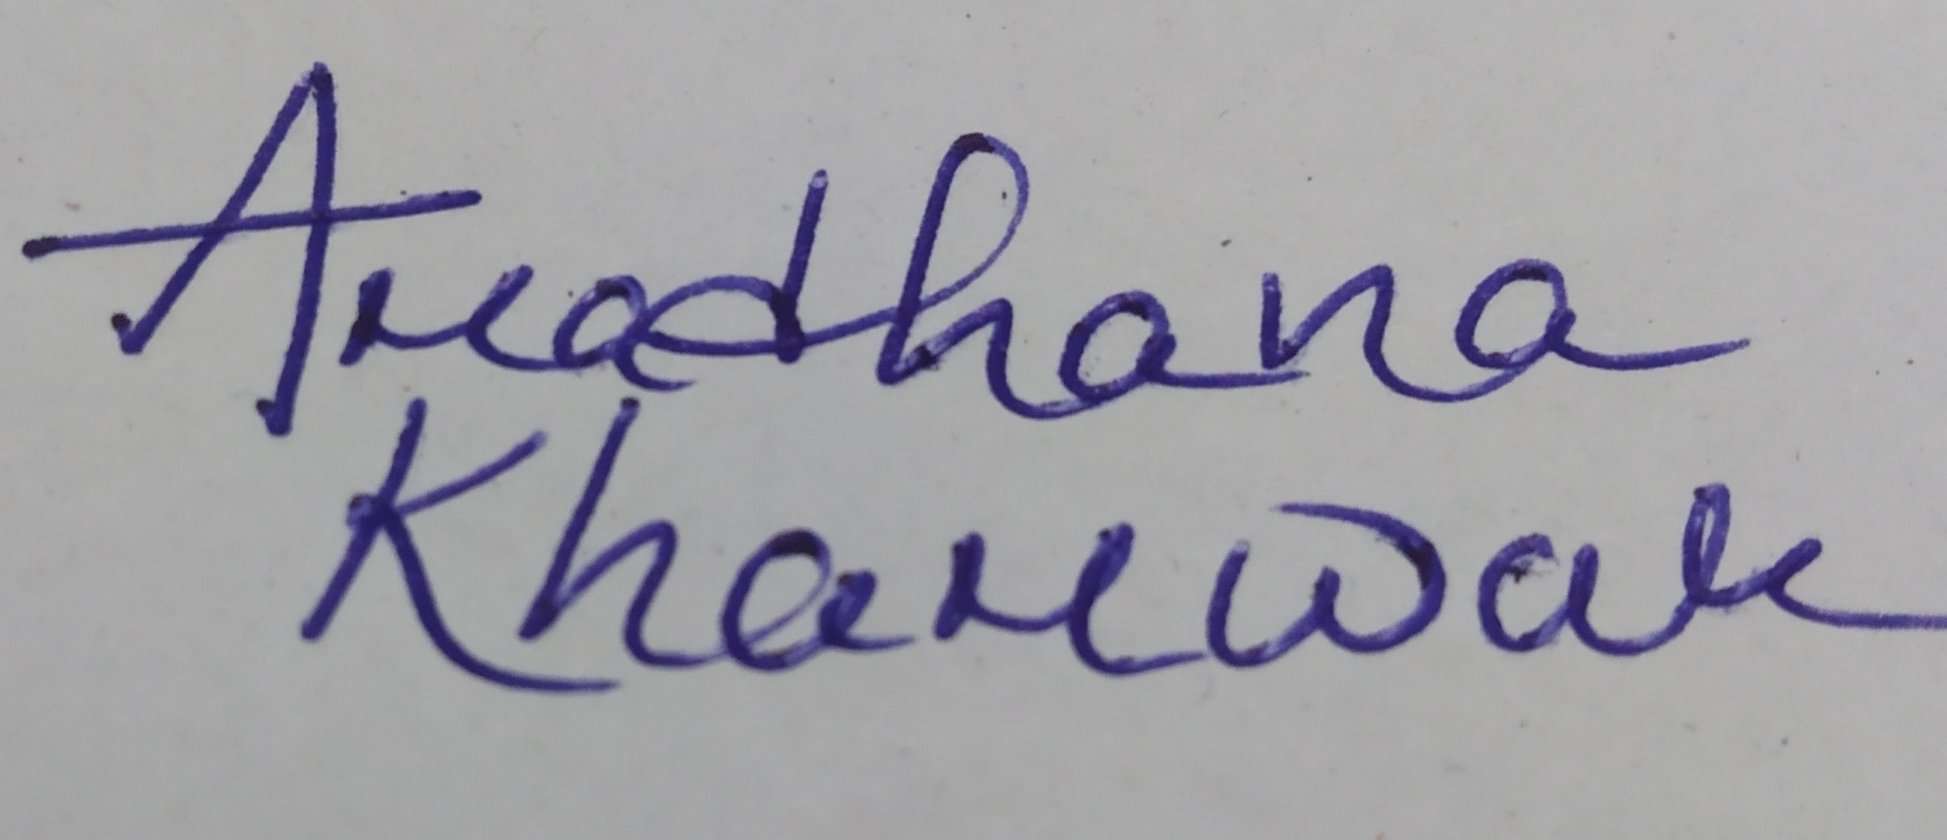 Aradhana
Kharwar